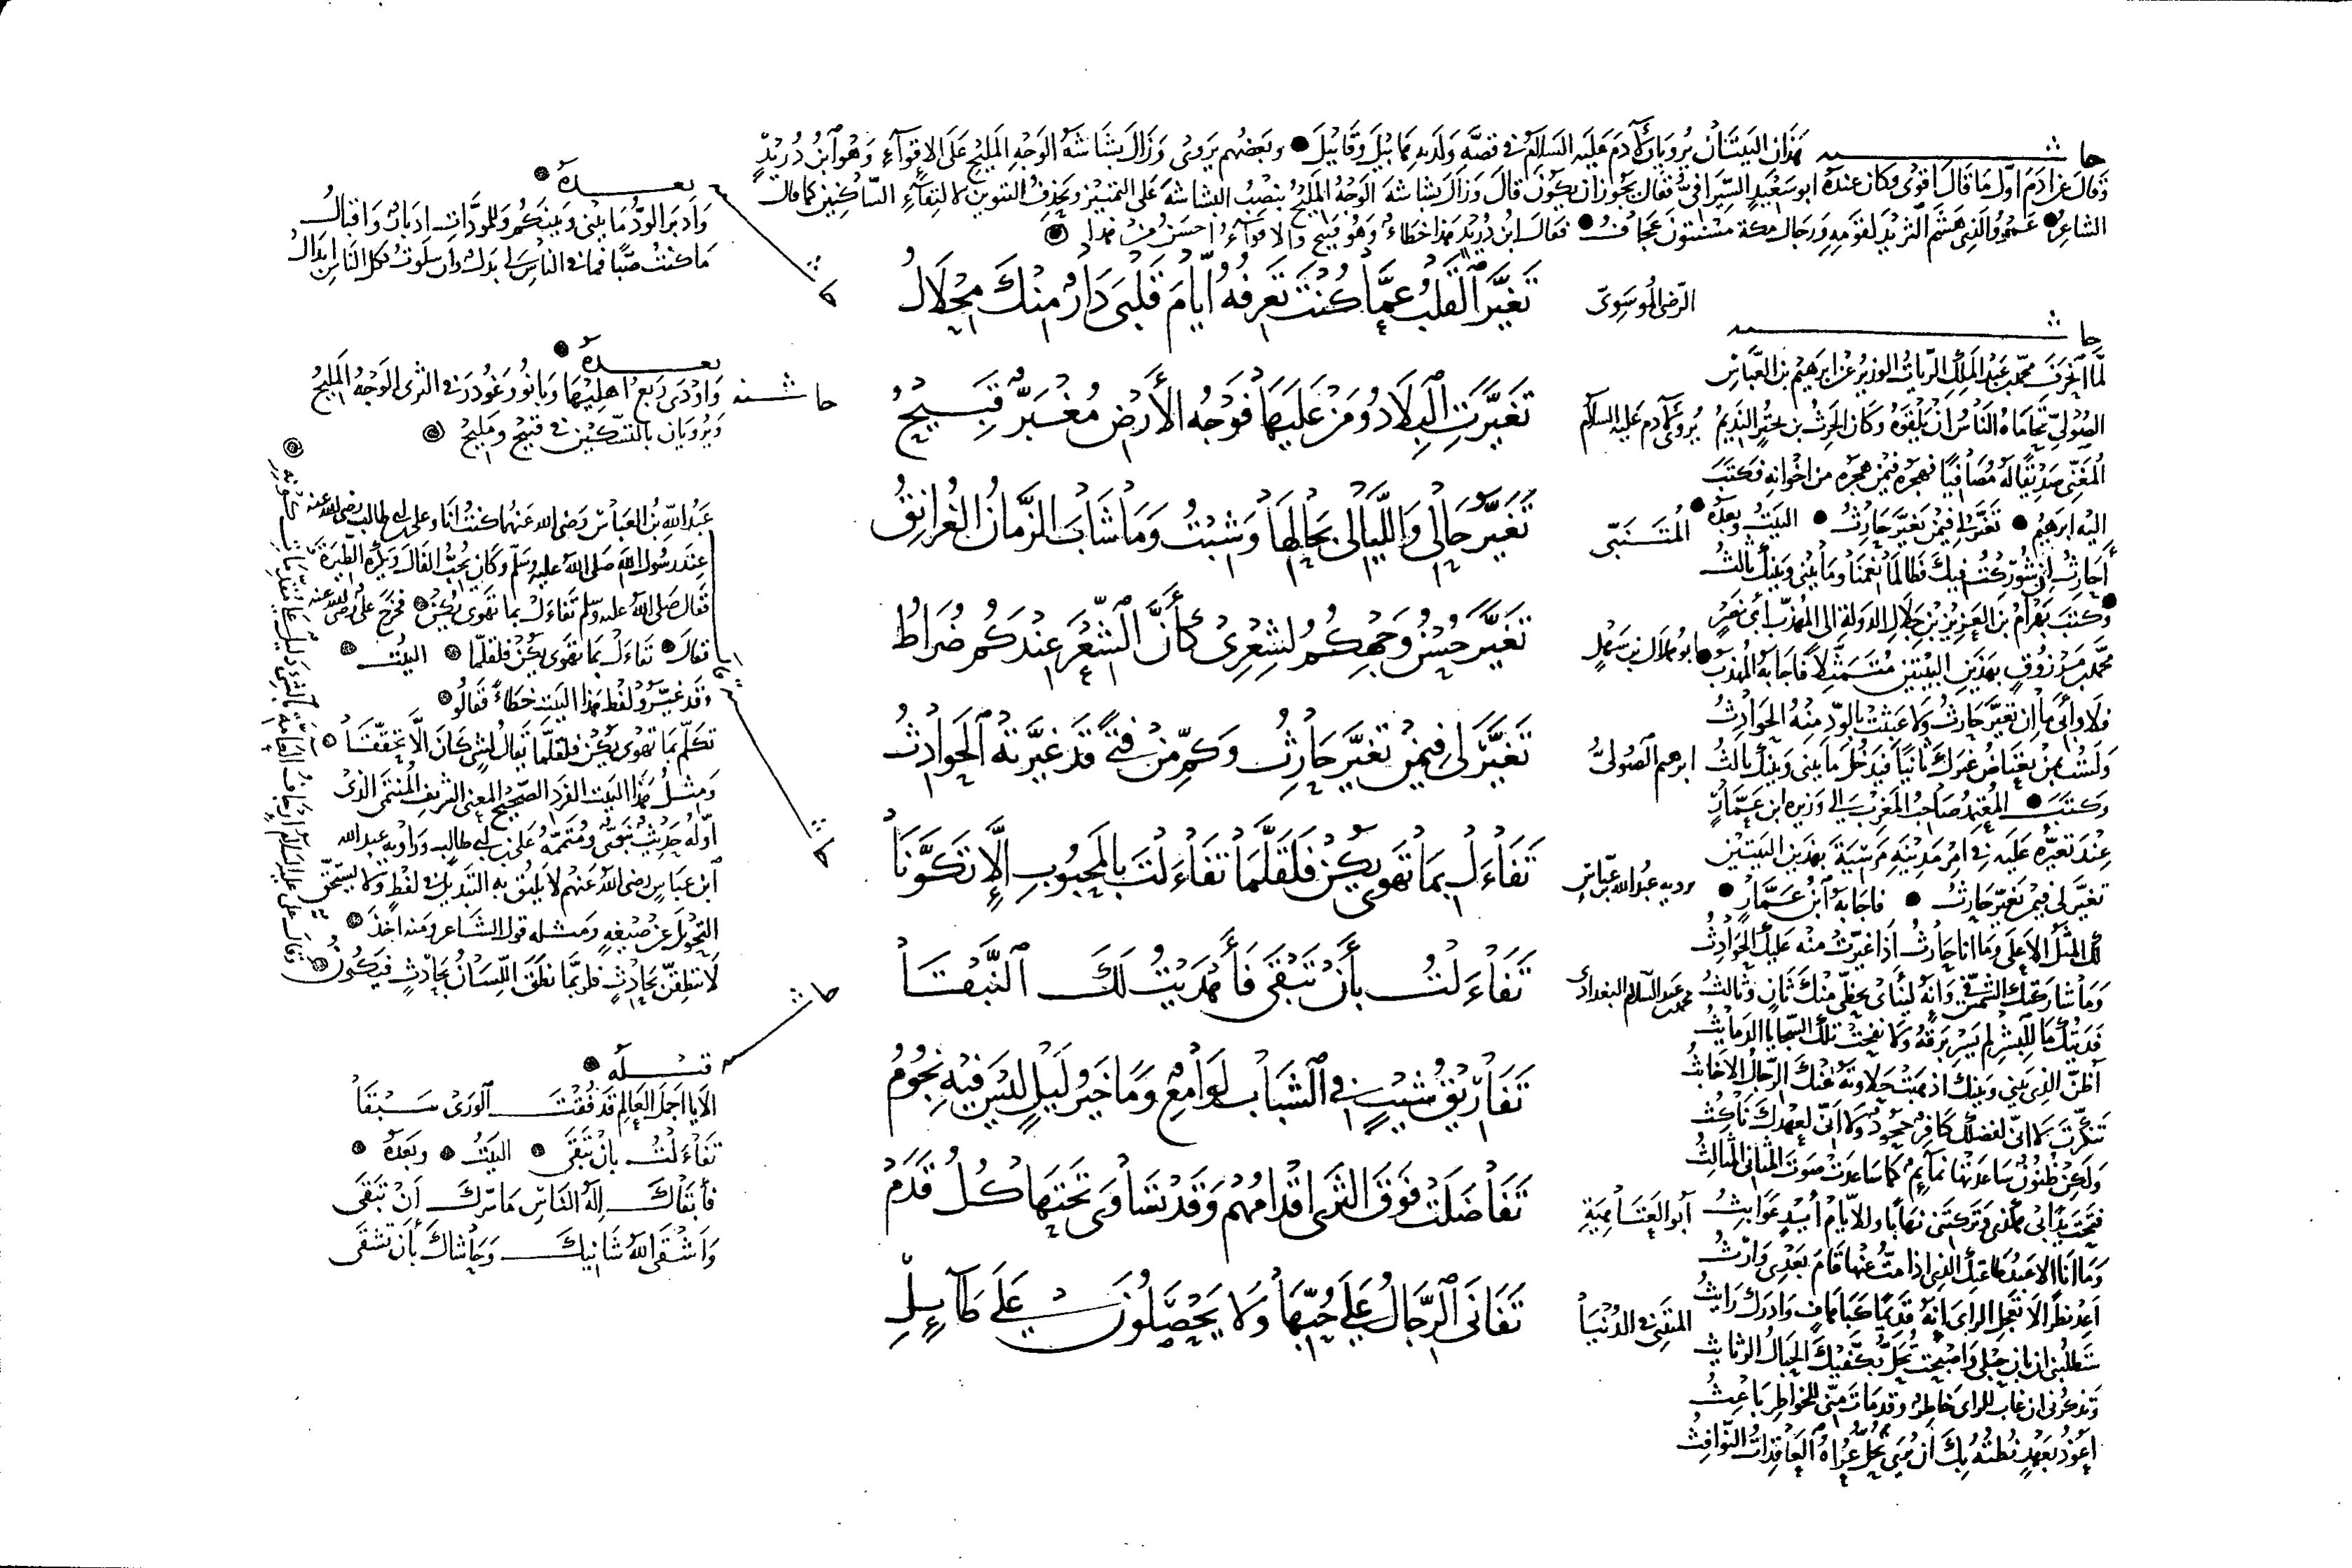 حاشية هذان البيتان يرويان لآدم عليه السلام في قصة ولديه هابيل وقابيل وبعضهم يروى وزال بشاشة الوجه المليح على الإقواء وهو ابن دريد
وقال عن آدم أول ما قال أقوى وكان عنده أبو سعيد السيرافي فقال يجوز أن يكون قال وزال بشاشة الوجه المليح بنصب البشاشة على التمييز وبحذف التنوين لالتقاء الساكنين كما قال
الشاعر عمرو الذي هشم الثريد لقومه ورجال مكة مسنتون عجاف فقال ابن دريد هذا خطاء وهو قبيح والإقواء أحسن من هذا
الرضى الموسوى
تغير القلب عما كنت تعرفه أيام قلبى دار منك محلال
يروى لآدم عليه السلام
تغيرت البلاد ومن عليها فوجه الأرض مغبر قبيح
المتنبى
تغير حالى والليالى بحالها وشبت وما شاب الزمان الغرانق
أبو هلال بن سهل
تغير حسن وجهكم لشعرى كأن الشعر عندكم ضراط
ابرهيم الصولى
تغير لى فيمن تغير حارث وكم من فتى قد غيرته الحوادث
عبد الله بن عباس
تفاءل بما تهوى يكن فلقلما تفاءلت بالمحبوب إلا تكونا
محمد عبد السلام البغدادى
تفاءلت بأن تبقى فأهديت لك النبقا
تفاريق شيب في الشباب لوامع وما خير ليل ليس فيه نجوم
أبو العتاهية
تفاضلت فوق الثرى أقدامهم وقد تساوى تحتها كل قدم
المتنبى في الدنيا
تفانى الرجال على حبها ولا يحصلون على طائل
حاشية
لما انحرف محمد بن عبد الملك الزيات الوزير عن ابرهيم بن العباس
الصولى تحاماه الناس أن يلقوه وكان الحرث بن بشخير النديم
المغنى صديقا له مصافيا فهجره فيمن هجره من اخوانه فكتب
اليه ابرهيم تغير لى فيمن تغير حارث البيت وبعده
أحارث إن شوركت فيك فطالما نعمنا وما بينى وبينك ثالث
وكتب بهرام بن العزيز بن جلال الدولة الى المهذب أبى نصر
محمد بن مرزوق بهذين البيتين متمثلا فأجابه المهذب
فلا وأبى ما إن تغير حارث ولا عبثت بالود منه الحوادث
ولست بمن يعتاض غيرك ثانيا فيدخل ما بينى وبينك ثالث
وكتب المعتمد صاحب المغرب الى وزيره ابن عمار
عند تغيره عليه في أمر مدينة مرسية بهذين البيتين
تغير لى فيمن تغير حارث فاجابه ابن عمار
لك المثل الأعلى وما أنا حارث إذا غيرت منه عليك الحوادث
وما شاركتك الشمس في وإنه لينأى بحظى منك ثان وثالث
فديتك ما للبشر لم يسر برقه ولا نفحت تلك السجايا الدمايث
أظن الذى بينى وبينك أذهبت حلاوته عنك الرجال الأخابث
تنكرت لا أنى لفضلك كافر جحود ولا أنى لعهدك ناكث
ولكن ظنون ساعدتها نمائم كما ساعدت صوت المثانى المثالث
وتركتنى نهابا وللأيام أيد عوابث
وما أنا إلا عبد طاعتك الذى إذا مت عنها قام بعدى وارث
أعد نظرا لا تعجل الرأى إنه قديما كبا هاف وأدرك رايث
ستطلبنى إن بان حبلى وأصبحت تحل بكفيك الحبال الرثايث
وتذكرنى إن غاب للرأى خاطر وقد مات منى للخواطر باعث
أعوذ بعهد نطته بك أن يرى يحل عراه العاقدات النوافث
بعده
وأدبر الود ما بينى وبينكم وللمودات إدبار وإقبال
ما كنت صبا فما في الناس لى بدل وإن سلوت فكل الناس أبدال
بعده
حاشية وأودى ربع أهليها وبانوا وغودر في الثرى الوجه المليح
ويرويان بالتسكين في قبيح ومليح
عبد الله بن العباس رضى الله عنهما كنت أنا وعلى بن أبى طالب رضى الله عنه
عند رسول الله صلى الله عليه وسلم وكان يحب الفال ويكره الطيرة
فقال صلى الله عليه وسلم تفاءل بما تهوى يكن فخرج على رضى الله عنه
فقال تفاءل بما تهوى يكن فلقلما البيت
وقد غيروا لفظ هذا البيت خطاء فقالوا
تكلم بما تهوى يكن فلقلما يقال لشىء كان إلا تحققا
ومثل هذا البيت الفرد الصحيح المعنى الشريف المنتمى الذى
أوله حديث نبوى ومتممه على بن أبى طالب وراويه عبد الله
ابن عباس رضى الله عنهم لا يليق به التبديل في لفظ ولا يستحق
التحويل عن صيغه ومثله قول الشاعر ومنه أخذ
لا تنطقن بحادث فلربما نطق اللسان بحادث فيكون
حاشية
قبله
ألا يا أجمل العالم قد فقت الورى سبقا
تفاءلت بأن تبقى البيت وبعده
فأبقاك إله الناس ما سرك أن تبقى
وأشقى الله شانيك وحاشاك بأن تشقى